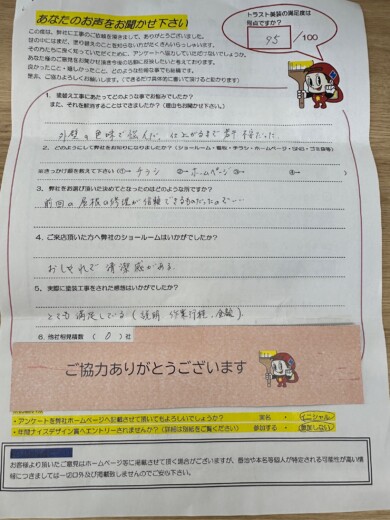 あなたのお声をお聞かせ下さい
トラスト美装の満足度は
何点ですか?
95 /100
この度は、弊社に工事のご依頼を頂きまして、ありがとうございました。
1. 塗替え工事にあたってどのような事でお悩みでしたか?
また、それを解消することはできましたか?
外壁の色味で悩んだ。仕上がるまで
2. どのようにして弊社をお知りになりましたか?(ショールーム・看板・チラシ・ホームページ・SNS・ゴミ袋等)
※きっかけ順を教えて下さい(①→ チラシ ②→ホームページ ③→ ④→ )
3. 弊社をお選び頂いた決めてとなったのはどのような所ですか?
前回の屋根の修理が信頼できるものだったので…
4. ご来店頂いた方へ弊社のショールームはいかがでしたか?
おしゃれで清潔感がある。
5. 実際に塗装工事をされた感想はいかがでしたか?
とても満足している(説明、作業行程、金額)
6. 他社相見積数 ( 0 ) 社
ご協力ありがとうございます
・アンケートを弊社ホームページへ記載させて頂いてもよろしいでしょうか? 実名 ・ イニシャル
・年間ナイスデザイン賞へエントリーされませんか?(詳細は別紙をご覧ください) 参加する ・ 参加しない
お客様より頂いたご意見はホームページ等に掲載させて頂く場合がございますが、担当や本名等個人が特定される可能性が高い情
報につきましては一切口外及び掲載致しませんのでご安心下さい。